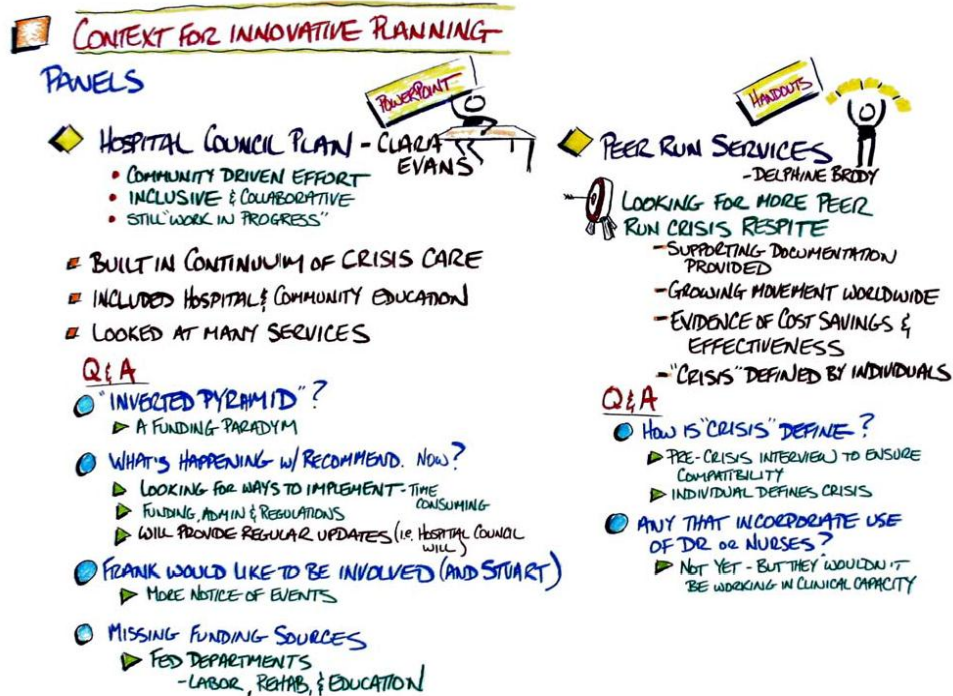 CONTEXT FOR INNOVATIVE PLANNING
PANELS
POWERPOINT
HOSPITAL COUNCIL PLAN - CLARA
EVANS
• COMMUNITY DRIVEN EFFORT
• INCLUSIVE & COLLABORATIVE
• STILL "WORK IN PROGRESS"
BUILT IN CONTINUUM OF CRISIS CARE
INCLUDED HOSPITAL & COMMUNITY EDUCATION
LOOKED AT MANY SERVICES
Q & A
"INVERTED PYRAMID"?
A FUNDING PARADYM
WHAT'S HAPPENING W/ RECOMMEND. NOW?
LOOKING FOR WAYS TO IMPLEMENT - TIME
CONSUMING
FUNDING, ADMIN & REGULATIONS
WILL PROVIDE REGULAR UPDATES (i.e. HOSPITAL COUNCIL
WILL)
FRANK WOULD LIKE TO BE INVOLVED (AND STUART)
MORE NOTICE OF EVENTS
MISSING FUNDING SOURCES
FED DEPARTMENTS
- LABOR, REHAB, & EDUCATION
HANDOUTS
PEER RUN SERVICES
- DELPHINE BRODY
LOOKING FOR MORE PEER
RUN CRISIS RESPITE
- SUPPORTING DOCUMENTATION
PROVIDED
- GROWING MOVEMENT WORLDWIDE
- EVIDENCE OF COST SAVINGS &
EFFECTIVENESS
- "CRISIS" DEFINED BY INDIVIDUALS
Q & A
HOW IS "CRISIS" DEFINE?
PRE-CRISIS INTERVIEW TO ENSURE
COMPATIBILITY
INDIVIDUAL DEFINES CRISIS
ANY THAT INCORPORATE USE
OF DR OR NURSES?
NOT YET - BUT THEY WOULDN'T
BE WORKING IN CLINICAL CAPACITY